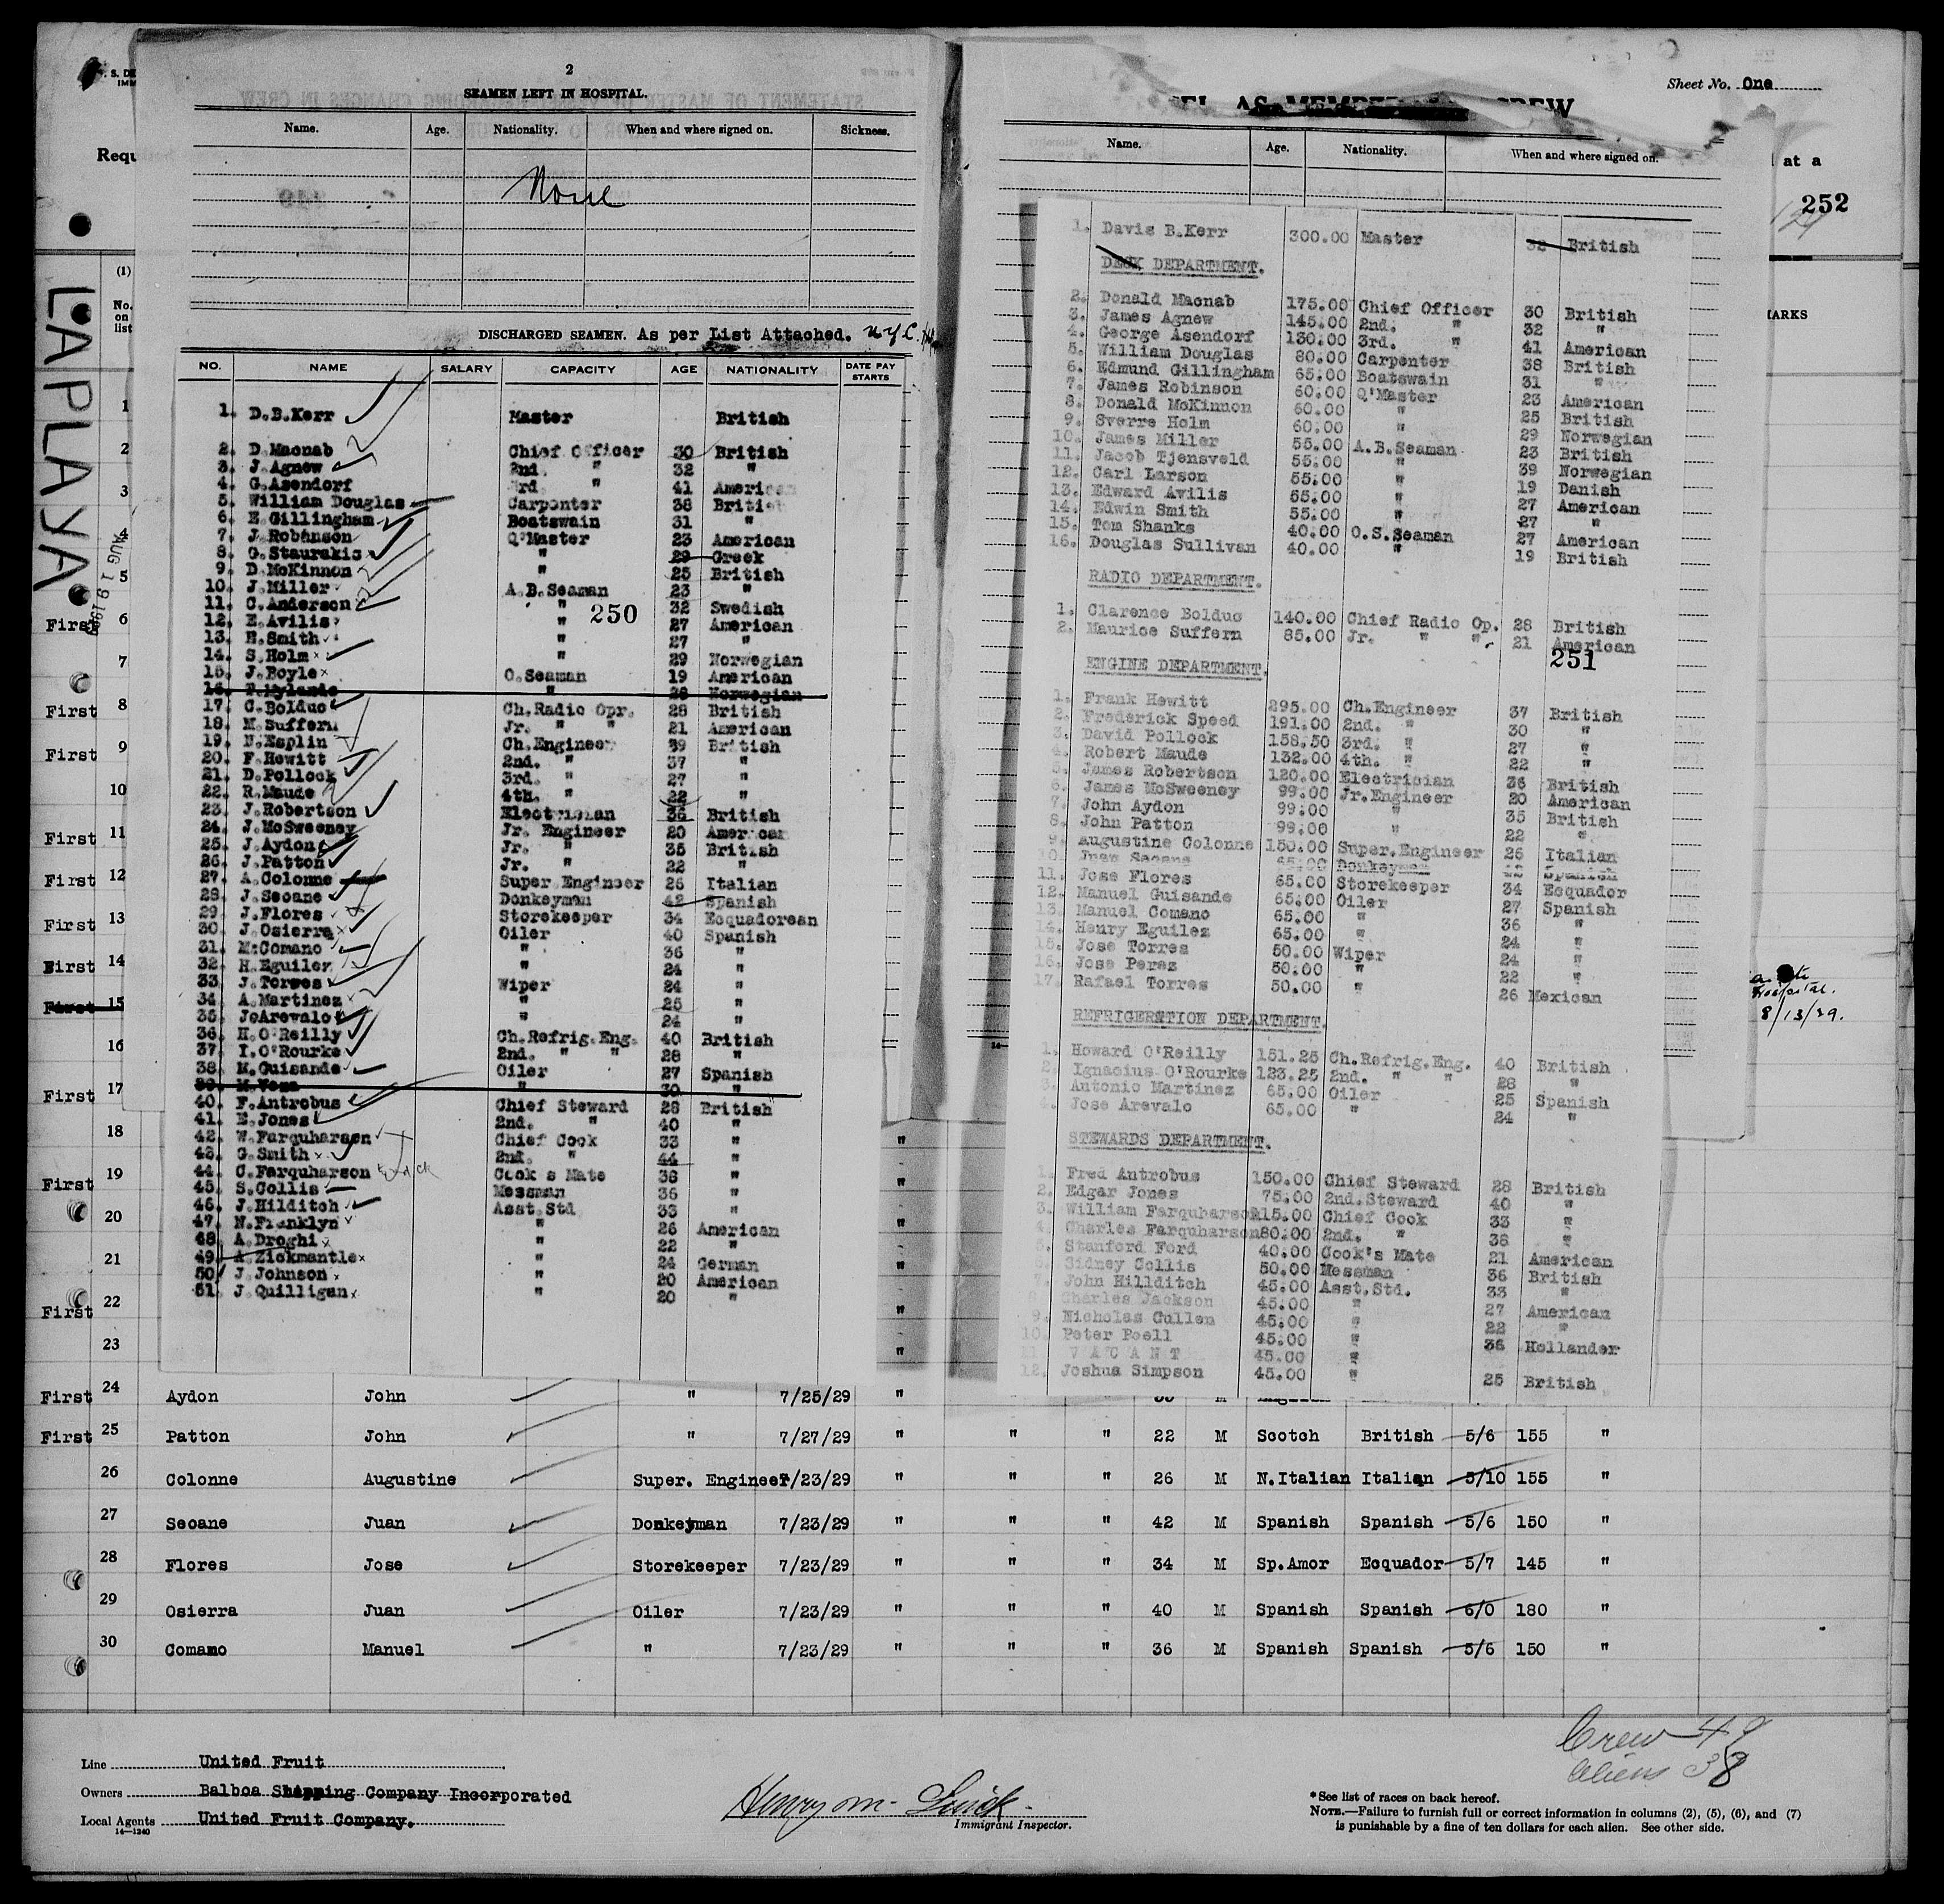 2
SEAMEN LEFT IN HOSPITAL.
Name. Age. Nationality. When and where signed on. Sickness.
None
DISCHARGED SEAMEN. As per List Attached. N.Y.C.
NO. NAME SALARY CAPACITY AGE NATIONALITY DATE PAY STARTS
1. D.B.Kerr Master British
2. D.Macnab Chief Officer 30 British
3. J.Agnew 2nd. " 32 "
4. G.Asendorf 3rd " 41 American
5. William Douglas Carpenter 38 British
6. E.Gillingham Boatswain 31 "
7. J.Robinson Q'Master 23 American
8. G.Staurakis " 29 Greek
9. D.McKinnon " 25 British
10. J.Miller A.B.Seaman 23 "
11. C.Anderson " 32 Swedish
250
12. E.Avilis " 27 American
13. E.Smith " 27 "
14. S.Holm " 29 Norwegian
15. J.Boyle O.Seaman 19 American
16. " 28 Norwegian
17. C.Bolduc Ch.Radio Opr. 28 British
18. M.Suffern Jr. " " 21 American
19. N.Esplin Ch.Engineer 39 British
20. F.Hewitt 2nd. " 37 "
21. D.Pollock 3rd. " 27 "
22. R.Maude 4th. " 22 "
23. J.Robertson Electrician 36 British
24. J.McSweeney Jr. Engineer 20 American
25. J.Aydon Jr. " 35 British
26. J.Patton Jr. " 22 "
27. A.Colonne Super Engineer 26 Italian
28. J.Seoane Donkeyman 42 Spanish
29. J.Flores Storekeeper 34 Ecquadorean
30. J.Osierra Oiler 40 Spanish
31. M.Comano " 36 "
32. H.Eguilez " 24 "
33. J.Torres Wiper 24 "
34. A.Martinez " 25 "
35. J.Arevalo " 24 "
36. H.O'Reilly Ch.Refrig.Eng. 40 British
37. I.O'Rourke 2nd. " " 28 "
38. M.Guisande Oiler 27 Spanish
39. M.Vena " 30 "
40. F.Antrobus Chief Steward 28 British
41. E.Jones 2nd. " 40 "
42. W.Farquharson Chief Cook 33 "
43. G.Smith 2nd. " 44 "
44. C.Farquharson Cook s Mate 38 "
45. S.Collis Messman 36 "
46. J.Hilditch Asst.Std. 33 "
47. N.Franklyn " 26 American
48. A.Droghi " 22 "
49. A.Zickmantle " 24 German
50. J.Johnson " 20 American
51. J.Quilligan " 20 "
Sheet No. One
Name. Age. Nationality. When and where signed on.
1. Davis B.Kerr 300.00 Master 38 British
DECK DEPARTMENT.
2. Donald Macnab 175.00 Chief Officer 30 British
3. James Agnew 145.00 2nd. " 32 "
4. George Asendorf 130.00 3rd. " 41 American
5. William Douglas 80.00 Carpenter 38 British
6. Edmund Gillingham 65.00 Boatswain 31 "
7. James Robinson 60.00 Q'Master 23 American
8. Donald McKinnon 60.00 " 25 British
9. Sverre Holm 60.00 " 29 Norwegian
10. James Miller 55.00 A.B.Seaman 23 British
11. Jacob Tjensveld 55.00 " 39 Norwegian
12. Carl Larson 55.00 " 19 Danish
13. Edward Avilis 55.00 " 27 American
14. Edwin Smith 55.00 " 27 "
15. Tom Shanks 40.00 O.S.Seaman 27 American
16. Douglas Sullivan 40.00 " 19 British
RADIO DEPARTMENT.
1. Clarence Bolduc 140.00 Chief Radio Op. 28 British
2. Maurice Suffern 85.00 Jr. " " 21 American
251
ENGINE DEPARTMENT.
1. Frank Hewitt 295.00 Ch.Engineer 37 British
2. Frederick Speed 191.00 2nd. " 30 "
3. David Pollock 158.50 3rd. " 27 "
4. Robert Maude 132.00 4th. " 22 "
5. James Robertson 120.00 Electrician 36 British
6. James McSweeney 99.00 Jr.Engineer 20 American
7. John Aydon 99.00 " 35 British
8. John Patton 99.00 " 22 "
9. Augustine Colonne 150.00 Super.Engineer 26 Italian
10. Juan Seoane 65.00 Donkeyman 42 Spanish
11. Jose Flores 65.00 Storekeeper 34 Ecquador
12. Manuel Guisande 65.00 Oiler 27 Spanish
13. Manuel Comano 65.00 " 36 "
14. Henry Eguilez 65.00 " 24 "
15. Jose Torres 50.00 Wiper 24 "
16. Jose Peraz 50.00 " 22 "
17. Rafael Torres 50.00 " 26 Mexican
REFRIGERATION DEPARTMENT.
1. Howard O'Reilly 151.25 Ch.Refrig.Eng. 40 British
2. Ignacius O'Rourke 123.25 2nd. " " 28 "
3. Antonio Martinez 65.00 Oiler 25 Spanish
4. Jose Arevalo 65.00 " 24 "
STEWARDS DEPARTMENT.
1. Fred Antrobus 150.00 Chief Steward 28 British
2. Edgar Jones 75.00 2nd.Steward 40 "
3. William Farquharson 115.00 Chief Cook 33 "
4. Charles Farquharson 80.00 2nd. " 38 "
5. Stanford Ford 40.00 Cook's Mate 21 American
6. Sidney Collis 50.00 Messman 36 British
7. John Hillditch 45.00 Asst.Std. 33 "
Charles Jackson 45.00 " 27 American
9. Nicholas Cullen 45.00 " 22 "
10. Peter Poell 45.00 " 36 Hollander
11. V A C A N T 45.00 "
12. Joshua Simpson 45.00 " 25 British
at a
252
LA PLAYA
AUG 19 1929
Requ
(1)
No. on list
ARKS
Hospital.
8/13/29.
1
2
3
4
5
First 6
7
First 8
First 9
10
First 11
First 12
First 13
First 14
First 15
16
First 17
18
First 19
20
21
First 22
23
First 24 Aydon John " 7/25/29 "
First 25 Patton John " 7/27/29 " " " 22 M Scotch British 5/6 155 "
26 Colonne Augustine Super. Engineer 7/23/29 " " " 26 M N.Italian Italian 5/10 155 "
27 Seoane Juan Donkeyman 7/23/29 " " " 42 M Spanish Spanish 5/6 150 "
28 Flores Jose Storekeeper 7/23/29 " " " 34 M Sp.Amer Ecquador 5/7 145 "
29 Osierra Juan Oiler 7/23/29 " " " 40 M Spanish Spanish 6/0 180 "
30 Comamo Manuel " 7/23/29 " " " 36 M Spanish Spanish 5/6 150 "
Crew 49
Aliens 38
Line United Fruit
Owners Balboa Shipping Company Incorporated
Local Agents United Fruit Company.
14—1240
Immigrant Inspector.
* See list of races on back hereof.
NOTE.—Failure to furnish full or correct information in columns (2), (5), (6), and (7)
is punishable by a fine of ten dollars for each alien. See other side.